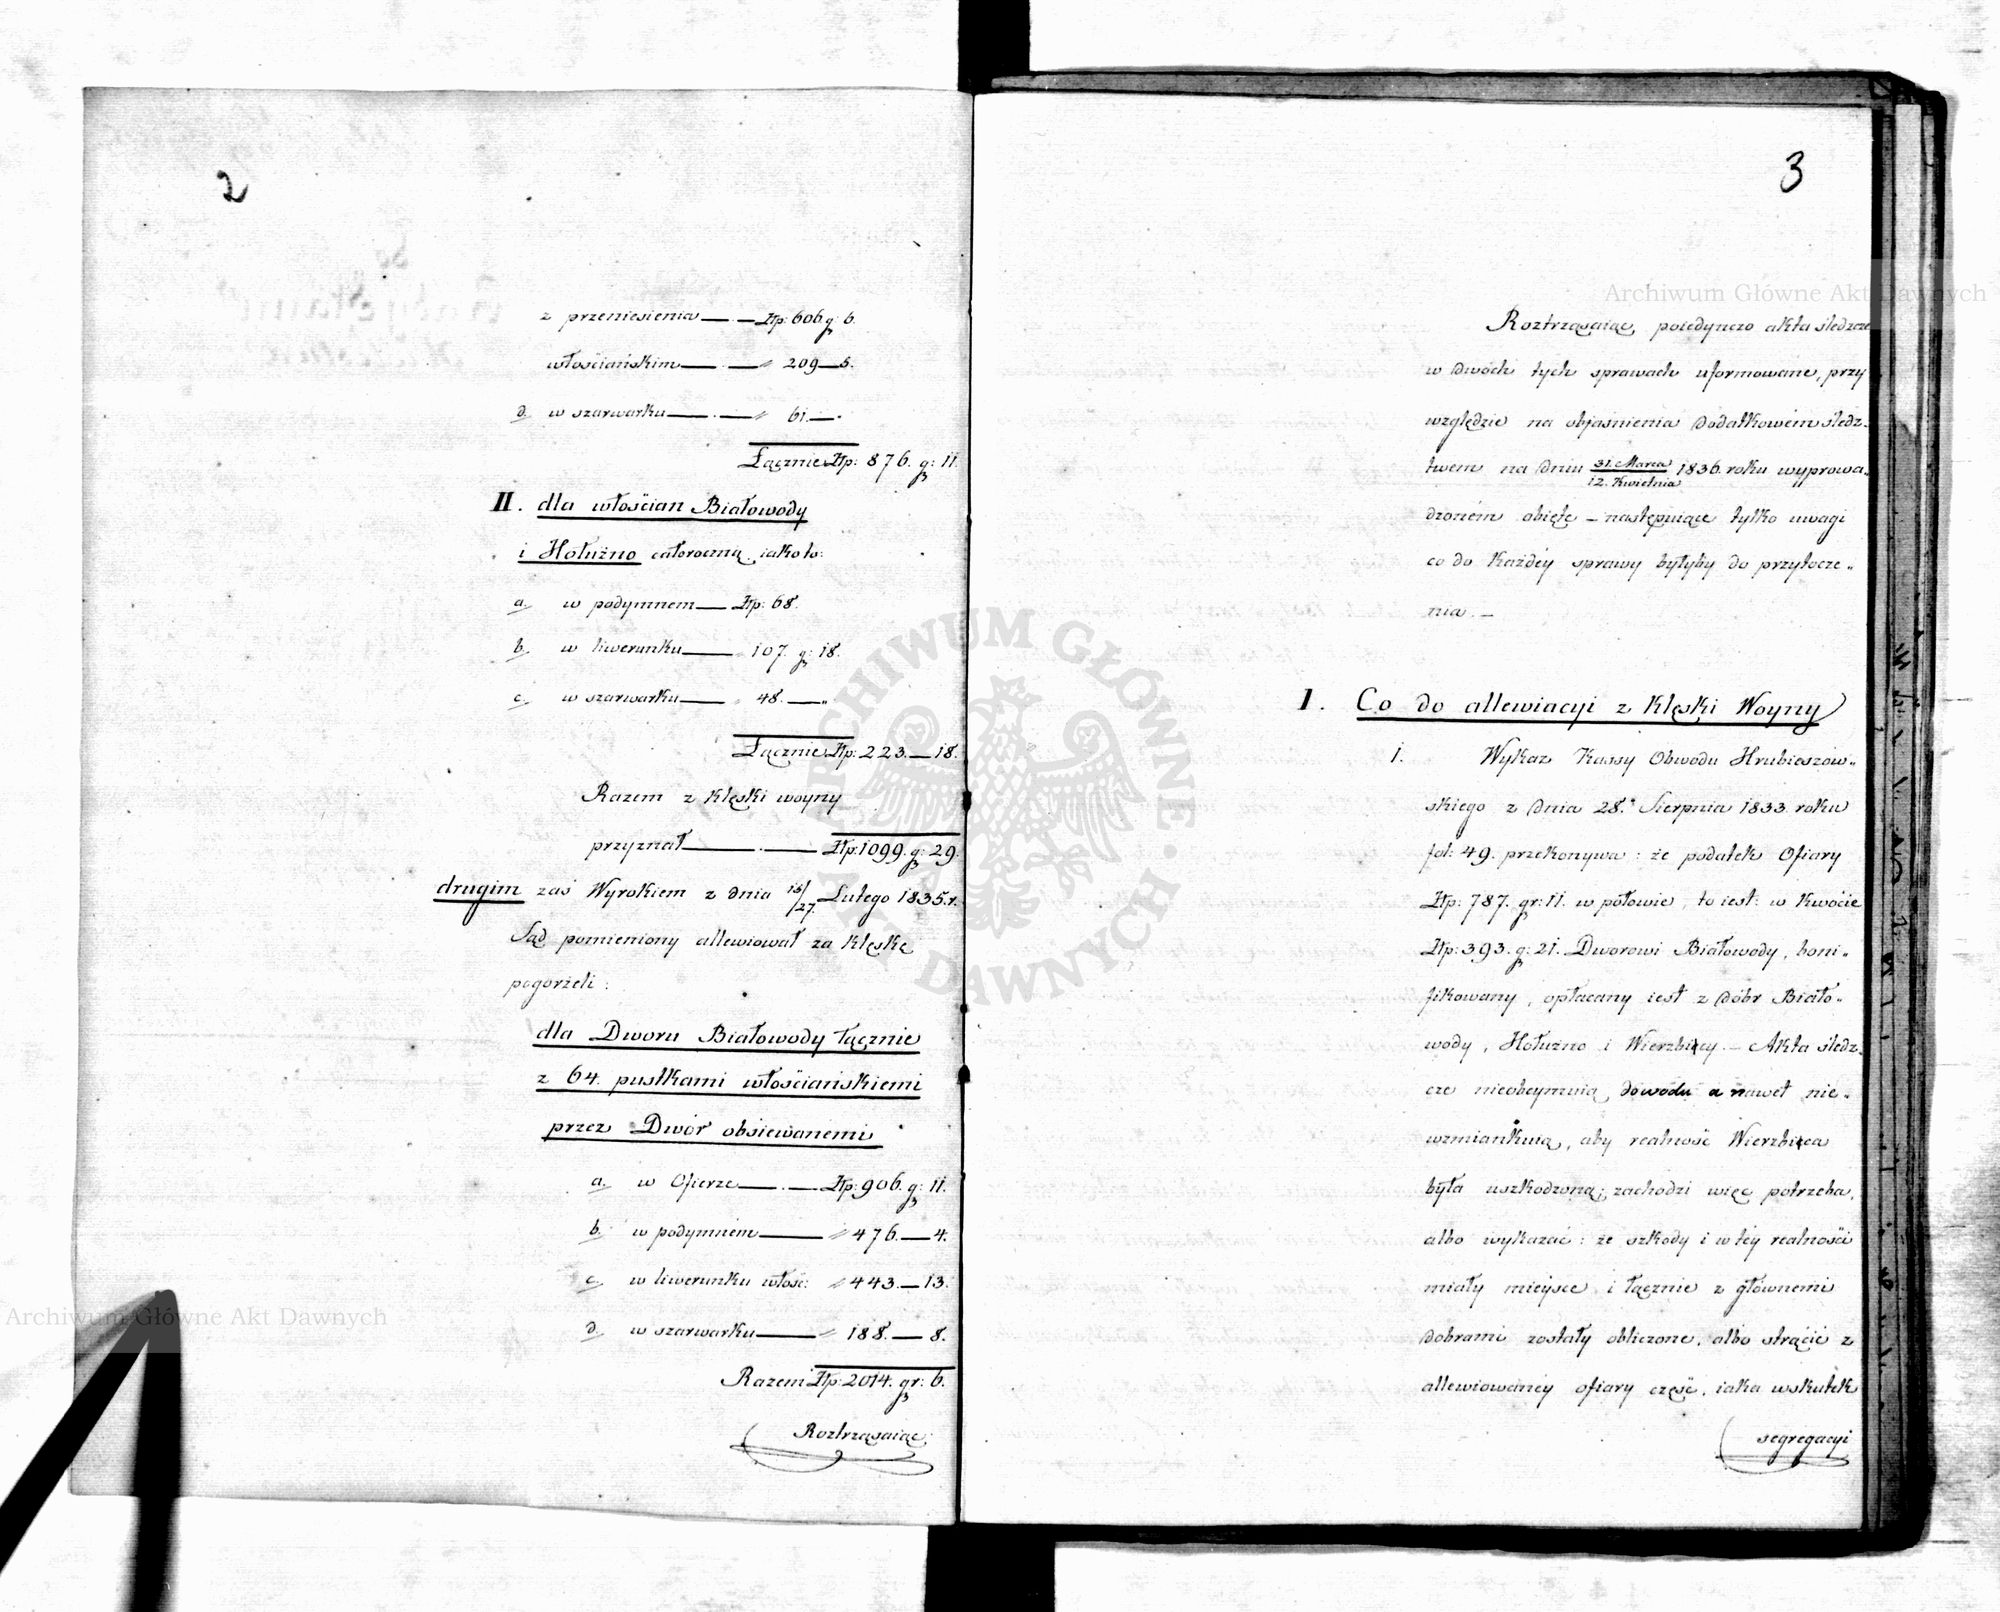 2
z przeniesienia — . — Złp: 606. g: 6.
włościańskim — . — " 209 — 5.
d. w szarwarku — . — " 61. — .
Łącznie Złp: 876. g: 11.
II. dla włościan Białowody
i Hołużno całoroczną, iako to:
a. w podymnem — Złp: 68.
b. w liwerunku — " 107. g: 18.
c. w szarwarku — " 48. — "
Łącznie Złp: 223. — 18.
Razem z klęski woyny
przyznał — . — Złp: 1099. g: 29.
drugim zaś Wyrokiem z dnia 15/27. Lutego 1835. r.
Sąd pomieniony allewiował za klęskę
pogorzeli:
dla Dworu Białowody łącznie
z 64. pustkami włościańskiemi
przez Dwór obsiewanemi
a. w Ofierze — . — Złp: 906. g: 11.
b. w podymném — " 476. — 4.
c. w liwerunku włość: " 443. — 13.
d. w szarwarku — " 188. — 8.
Razem Złp: 2014. gr: 6.
Roztrząsaiąc
3
Roztrząsaiąc, poiedynczo akta śledzcze
w dwóch tych sprawach uformowane, przy
względzie na objaśnienia dodatkowém śledz-
twem na dniu 31. Marca/12. Kwietnia 1836. roku wyprowa„
dzoném obięte – następuiące tylko uwagi
co do każdéy sprawy byłyby do przytocze„
nia. –
I. Co do allewiacyi z klęski Woyny
1. Wykaz Kassy Obwodu Hrubieszow„
skiego z dnia 28. Sierpnia 1833. roku
fol: 49. przekonywa: że podatek Ofiary
Złp: 787. gr: 11. w połowie, to iest: w kwocie
Złp: 393. g: 21. Dworowi Białowody, boni„
fikowany, opłacany iest z dóbr Biało„
wody, Hołużno i Wierzbicy. – Akta śledz„
cze nieobeymuią dowodu a nawet nie„
wzmiankuią, aby realność Wierzbica
była uszkodzoną; zachodzi więc potrzeba,
albo wykazać: że szkody i w téy realności
miały mieysce i łącznie z głównemi
dobrami zostały obliczone, albo strącić z
allewiowanéy ofiary część, iaka wskutek
segregacyi
Archiwum Główne Akt Dawnych
Archiwum Główne Akt Dawnych
ARCHIWUM GŁÓWNE AKT DAWNYCH